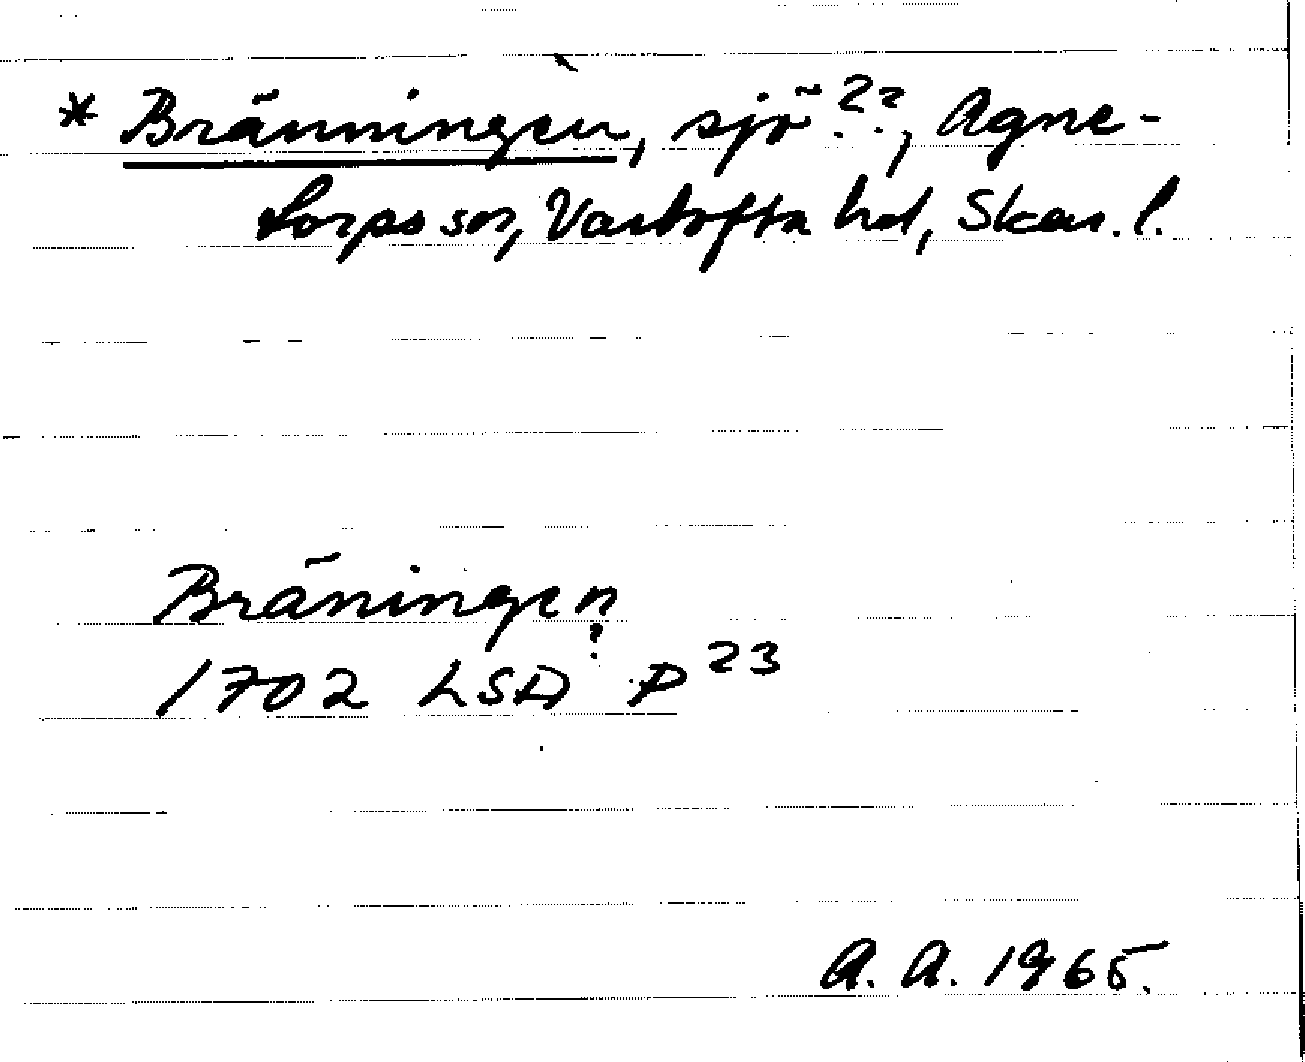 * Bränningen, sjö??, Agne-
torps sn, Vartofta hd, Skar. l.
Bräningen
?
1702 LSA P23
A. A. 1965.